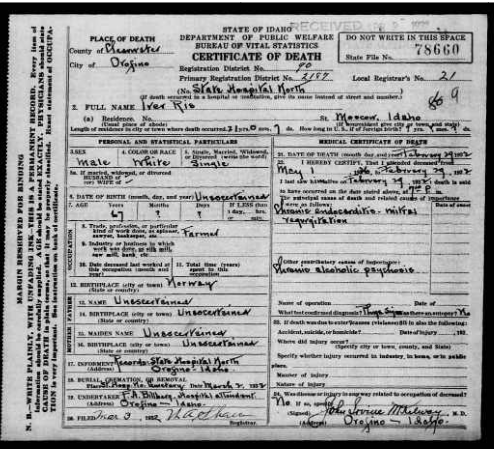 STATE OF IDAHO
RECEIVED
DEPARTMENT OF PUBLIC WELFARE
BUREAU OF VITAL STATISTICS
CERTIFICATE OF DEATH
DO NOT WRITE IN THIS SPACE
78660
State File No.
PLACE OF DEATH
County of Clearwater
City of Orofino
Registration District No. 90
Primary Registration District No. 2187
Local Registrar's No. 21
No. State Hospital North
(If death occurred in a hospital or institution, give its name instead of street and number)
2. FULL NAME Iver Rio
(a) Residence. No. St. Moscow, Idaho
(Usual place of abode) (If nonresident give city or town and state)
Length of residence in city or town where death occurred
PERSONAL AND STATISTICAL PARTICULARS
MEDICAL CERTIFICATE OF DEATH
3. SEX 4. COLOR OR RACE 5. Single, Married, Widowed, or Divorced (write the word)
Male White Single
5a. If married, widowed, or divorced
HUSBAND of
(or) WIFE of
6. DATE OF BIRTH (month, day and year) Unascertained
7. AGE Years Months Days If LESS than 1 day,
67 ? ?
8. Trade, profession, or particular kind of work done, as spinner, sawyer, bookkeeper, etc. Farmer
9. Industry or business in which work was done, as silk mill, saw mill, bank, etc.
10. Date deceased last worked at this occupation (month and year)
11. Total time (years) spent in this occupation
12. BIRTHPLACE (city or town) Norway
(State or country)
13. NAME Unascertained
14. BIRTHPLACE (city or town) Unascertained
(State or country)
15. MAIDEN NAME Unascertained
16. BIRTHPLACE (city or town) Unascertained
(State or country)
17. INFORMANT Records State Hospital North
(Address) Orofino - Idaho.
18. BURIAL, CREMATION, OR REMOVAL
Date March 2, 1932
19. UNDERTAKER Hospital attendant
(Address) Orofino - Idaho.
20. FILED Mar 3
Registrar.
21. DATE OF DEATH (month, day and year) February 29 1932
22. I HEREBY CERTIFY, That I attended deceased from
May 1 February 29, 1932
I last saw him alive on February 29 1932 death is said
to have occurred on the date stated above, at
The principal cause of death and related causes of importance were as follows:
Date of onset
Chronic endocarditis - mitral
regurgitation
Other contributory causes of importance:
Chronic alcoholic psychosis
Name of operation
What test confirmed diagnosis? Was there an autopsy? No
23. If death was due to external causes (violence) fill in also the following:
Accident, suicide, or homicide? Date of injury
Where did injury occur?
(Specify city or town, county, and State)
Specify whether injury occurred in industry, in home, or in public place.
Manner of injury
Nature of injury
24. Was disease or injury in any way related to occupation of deceased?
No. If so, specify
(Signed) John Irvine McKelway, M.D.
(Address) Orofino - Idaho.
MARGIN RESERVED FOR BINDING
N. B.—WRITE PLAINLY, WITH UNFADING INK, THIS IS A PERMANENT RECORD. Every item of
information should be carefully supplied. AGE should be stated EXACTLY. PHYSICIANS should state
CAUSE OF DEATH in plain terms, so that it may be properly classified. Exact statement of OCCUPATION is very important.